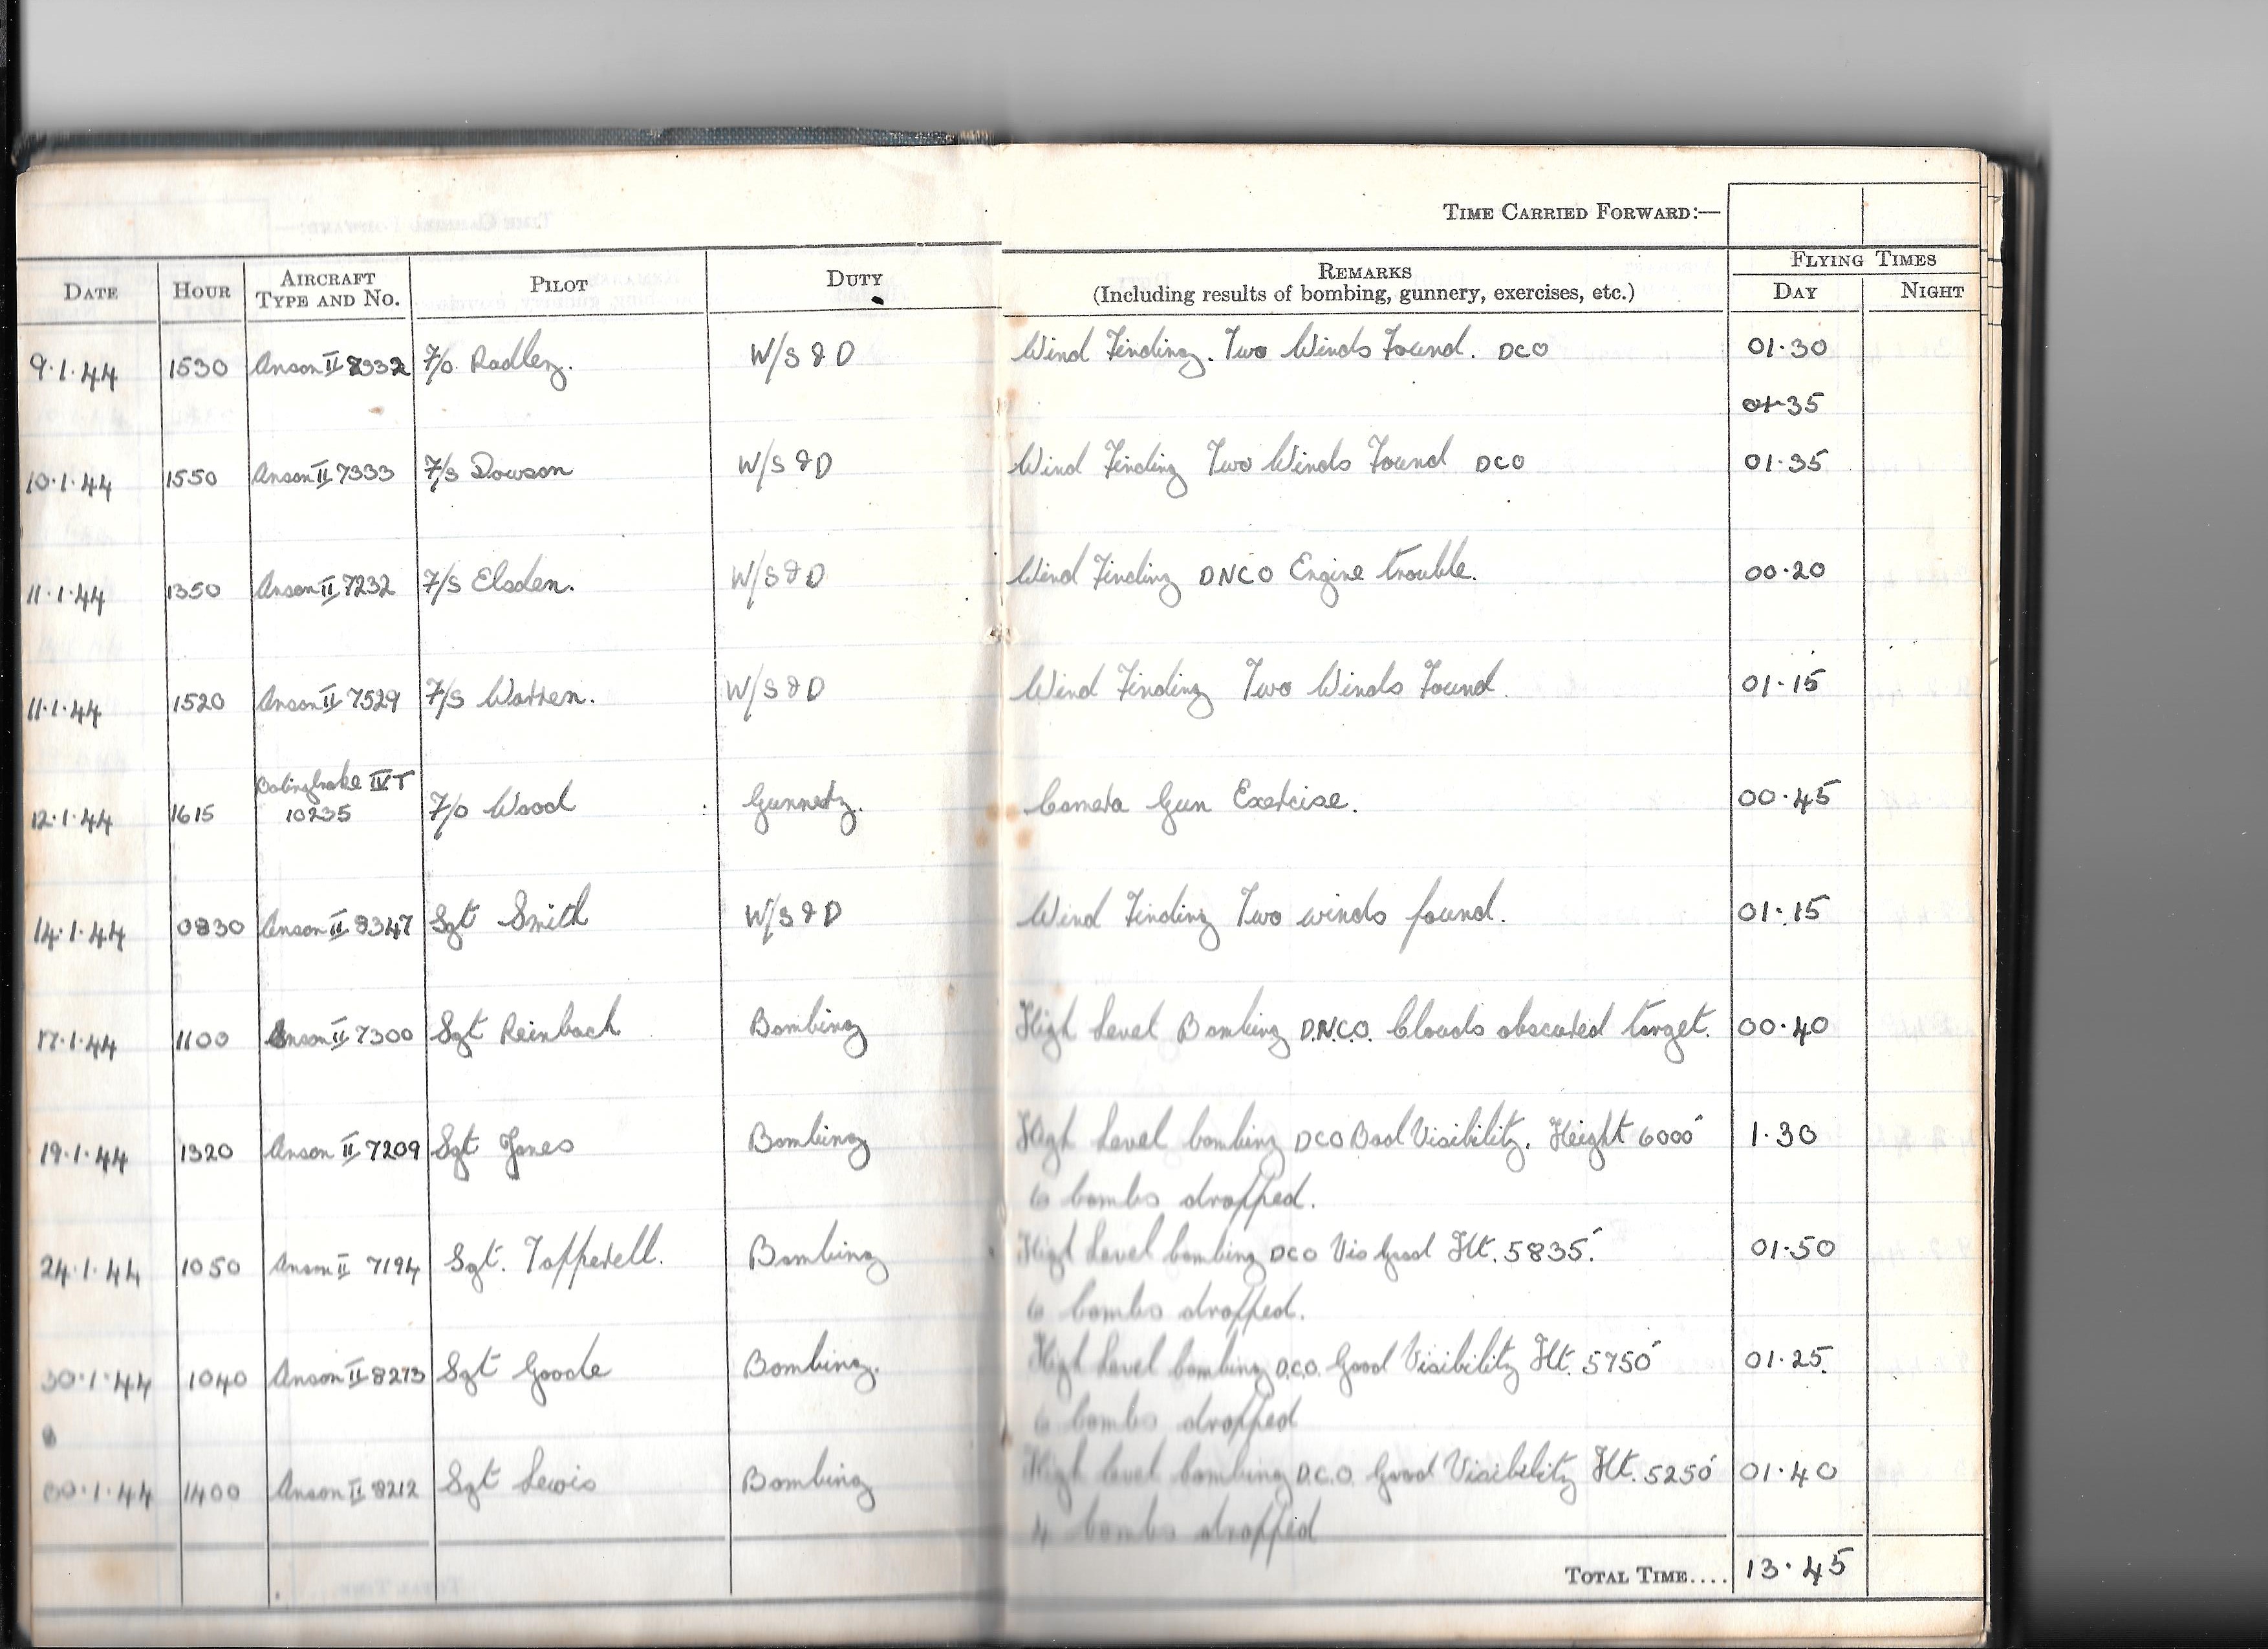 TIME CARRIED FORWARD:—
DATE HOUR AIRCRAFT TYPE AND No. PILOT DUTY REMARKS (Including results of bombing, gunnery, exercises, etc.) FLYING TIMES DAY NIGHT
9.1.44 1530 Anson II 8332 F/o Radley. W/S & D Wind Finding. Two Winds Found. DCO 01.30
01.35
10.1.44 1550 Anson II 7333 F/s Dowson W/S & D Wind Finding Two Winds Found DCO 01.35
11.1.44 1350 Anson II 7232 F/s Elsden. W/S & D Wind Finding DNCO Engine trouble. 00.20
11.1.44 1520 Anson II 7529 F/s Warren. W/S & D Wind Finding Two Winds Found. 01.15
Bolingbroke IV T
12.1.44 1615 10235 F/o Wood Gunnery. Camera Gun Exercise. 00.45
14.1.44 0830 Anson II 8347 Sgt Smith W/S & D Wind Finding Two winds found. 01.15
17.1.44 1100 Anson II 7300 Sgt Reinbach Bombing High Level Bombing D.N.C.O. Clouds obscured target. 00.40
19.1.44 1320 Anson II 7209 Sgt Jones Bombing High Level bombing DCO Bad Visibility. Height 6000' 1.30
6 bombs dropped.
24.1.44 1050 Anson II 7194 Sgt. Topperell. Bombing High Level bombing DCO Vis Good Ht. 5835'. 01.50
6 bombs dropped.
30.1.44 1040 Anson II 8273 Sgt Goode Bombing. High Level bombing D.C.O. Good Visibility Ht. 5750' 01.25.
6 bombs dropped
30.1.44 1400 Anson II 8212 Sgt Lewis Bombing High level bombing D.C.O. Good Visibility Ht. 5250' 01.40
4 bombs dropped
TOTAL TIME.... 13.45